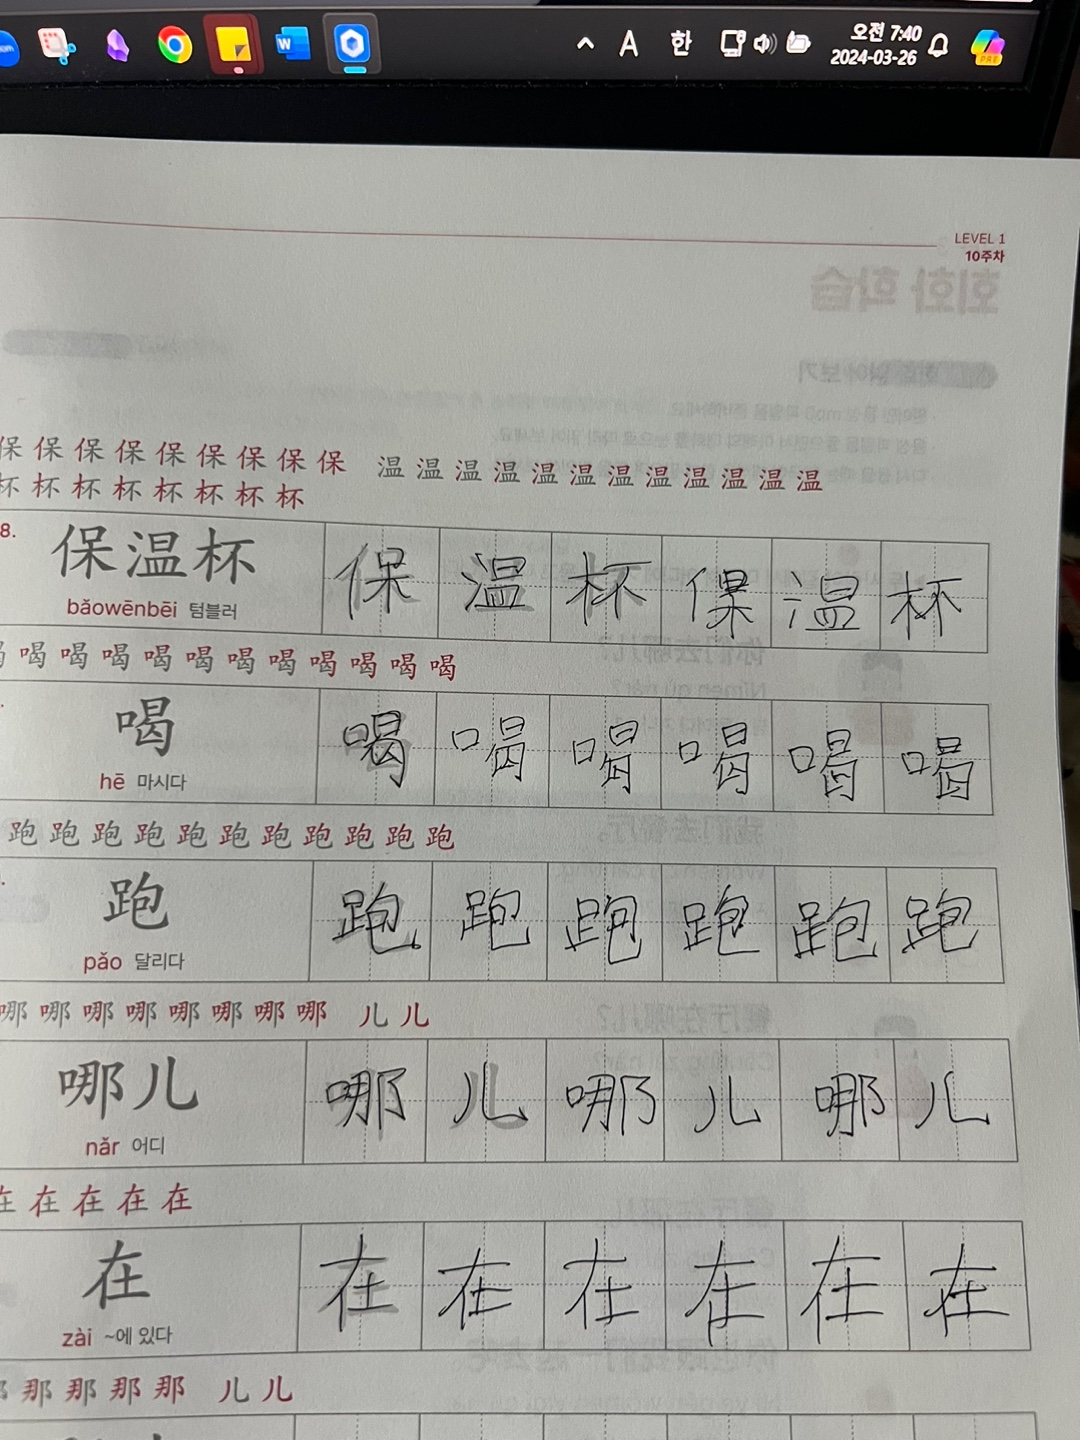 W
A 한 오전 7:40
2024-03-26
PRE
LEVEL 1
10주차
保 保 保 保 保 保 保 保 保 温 温 温 温 温 温 温 温 温 温 温 温
杯 杯 杯 杯 杯 杯 杯 杯
8. 保温杯 保 温 杯 保 温 杯
bǎowēnbēi 텀블러
喝 喝 喝 喝 喝 喝 喝 喝 喝 喝 喝 喝
喝 喝 喝 喝 喝 喝 喝
hē 마시다
跑 跑 跑 跑 跑 跑 跑 跑 跑 跑 跑
跑 跑 跑 跑 跑 跑 跑
pǎo 달리다
哪 哪 哪 哪 哪 哪 哪 哪 儿 儿
哪儿 哪 儿 哪 儿 哪 儿
nǎr 어디
在 在 在 在 在
在 在 在 在 在 在 在
zài ~에 있다
那 那 那 那 儿 儿